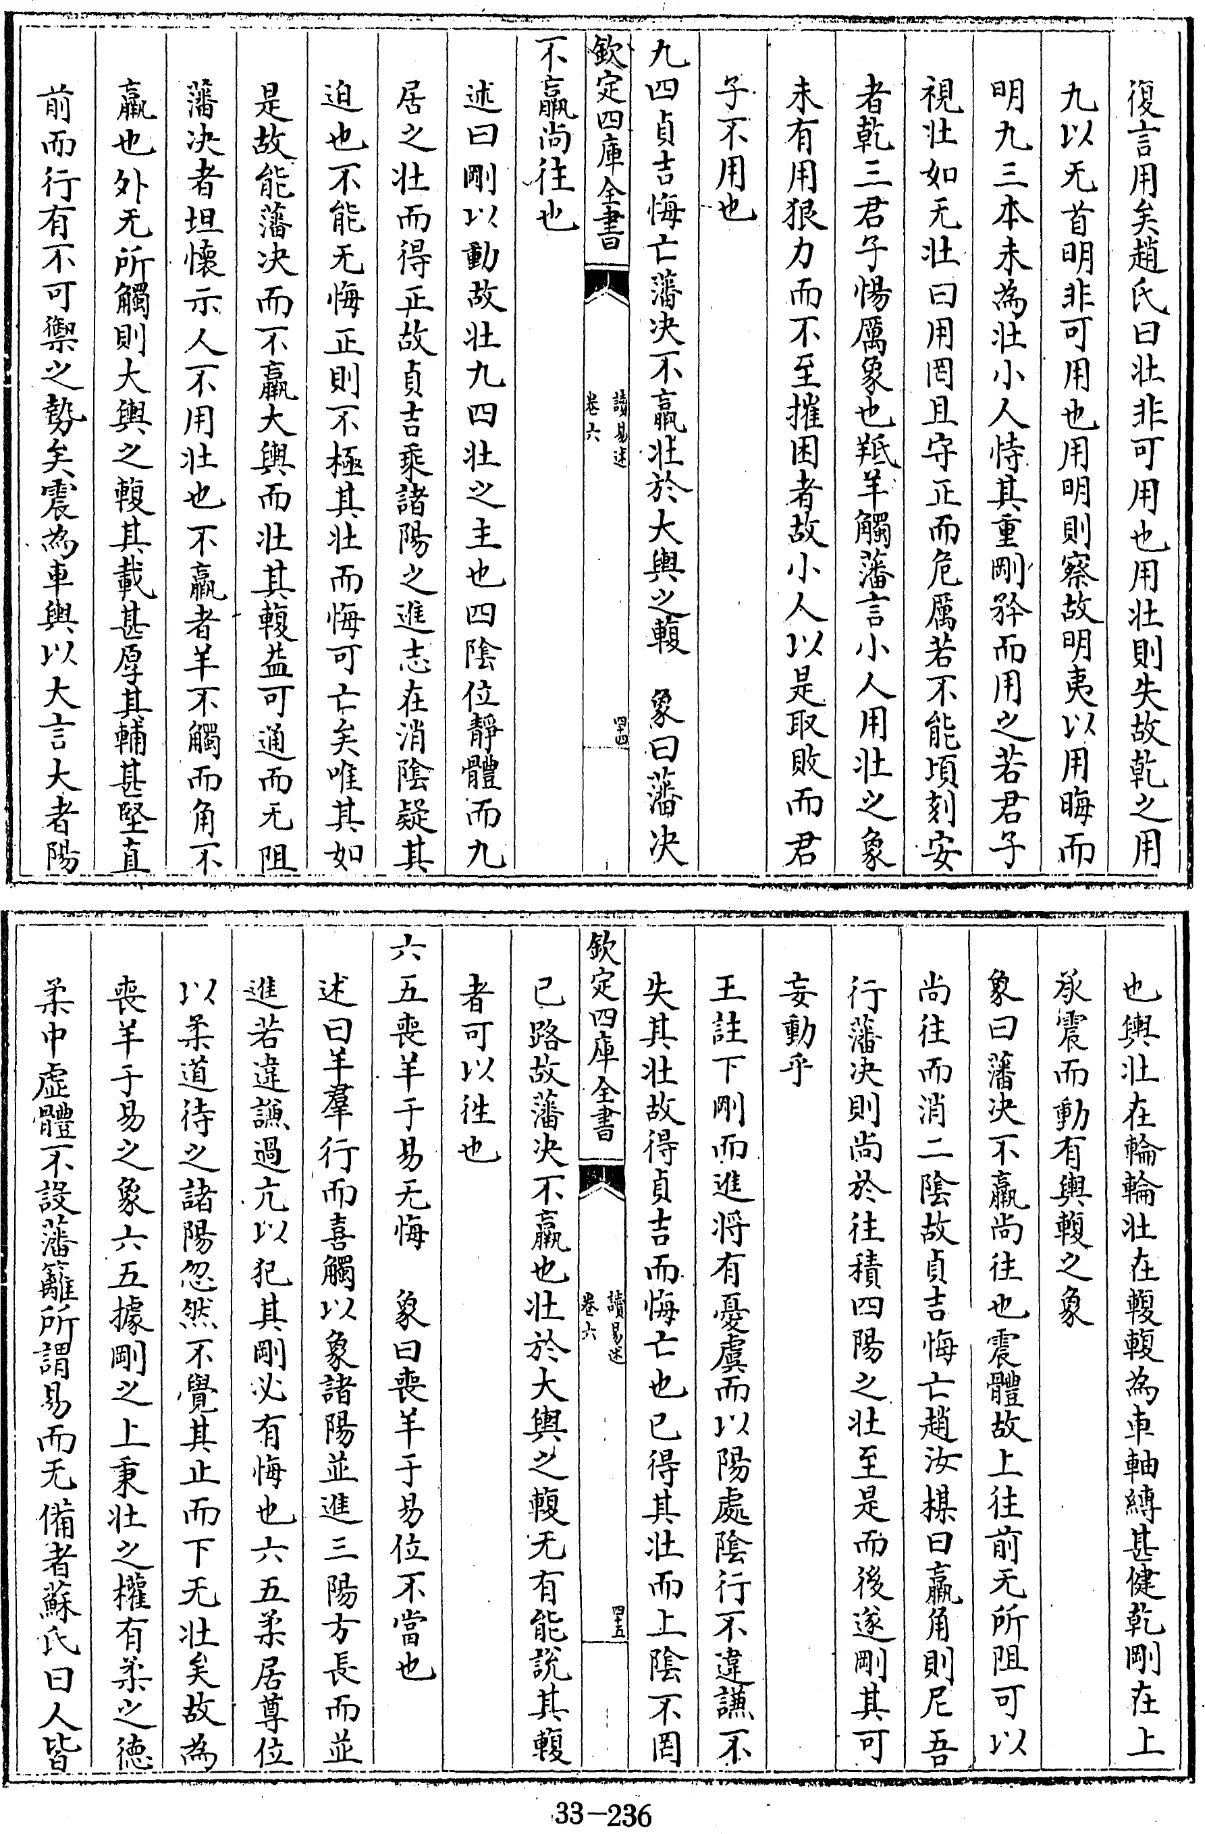 復言用矣趙氏曰壯非可用也用壯則失故乾之用
九以无首明非可用也用明則察故明夷以用晦而
明九三本未為壯小人恃其重剛矜而用之若君子
視壯如无壯曰用罔且守正而危厲若不能頃刻安
者乾三君子惕厲象也羝羊觸藩言小人用壯之象
未有用狠力而不至摧困者故小人以是取敗而君
子不用也
九四貞吉悔亡藩决不羸壯於大輿之輹　象曰藩决
欽定四庫全書
讀易述
卷六
四十四
不羸尚往也
述曰剛以動故壯九四壯之主也四陰位靜體而九
居之壯而得正故貞吉乘諸陽之進志在消陰疑其
迫也不能无悔正則不極其壯而悔可亡矣唯其如
是故能藩决而不羸大輿而壯其輹益可通而无阻
藩决者坦懷示人不用壯也不羸者羊不觸而角不
羸也外无所觸則大輿之輹其載甚厚其輔甚堅直
前而行有不可禦之勢矣震為車輿以大言大者陽
也輿壯在輪輪壯在輹輹為車軸縳甚健乾剛在上
承震而動有輿輹之象
象曰藩决不羸尚往也震體故上往前无所阻可以
尚往而消二陰故貞吉悔亡趙汝楳曰羸角則尼吾
行藩决則尚於往積四陽之壯至是而後遂剛其可
妄動乎
王註下剛而進將有憂虞而以陽處陰行不違謙不
失其壯故得貞吉而悔亡也已得其壯而上陰不罔
欽定四庫全書
讀易述
卷六
四十五
已路故藩决不羸也壯於大輿之輹无有能說其輹
者可以往也
六五喪羊于易无悔　象曰喪羊于易位不當也
述曰羊羣行而喜觸以象諸陽並進三陽方長而並
進若違謙過亢以犯其剛必有悔也六五柔居尊位
以柔道待之諸陽忽然不覺其止而下无壯矣故為
喪羊于易之象六五據剛之上秉壯之權有柔之德
柔中虛體不設藩籬所謂易而无備者蘇氏曰人皆
33-236